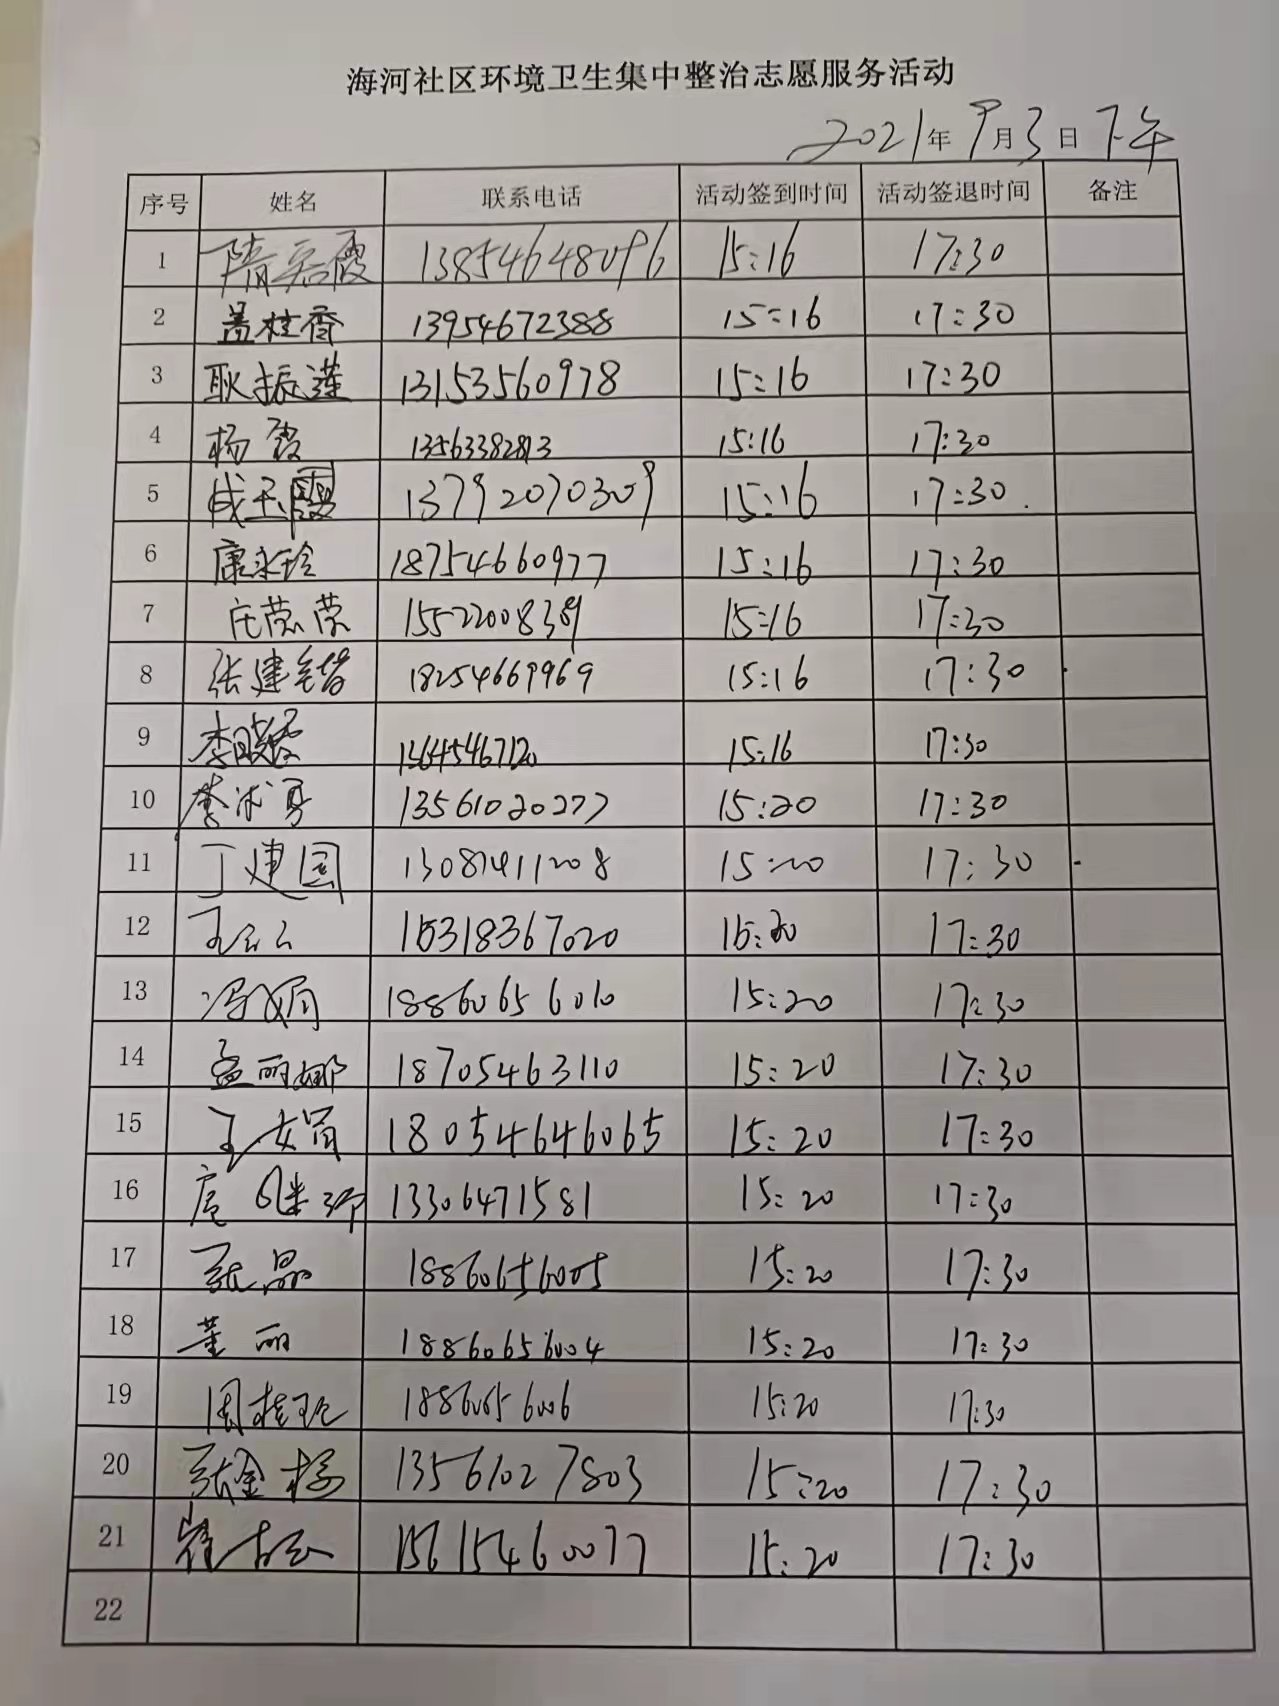 海河社区环境卫生集中整治志愿服务活动
2021年9月3日 下午
序号 姓名 联系电话 活动签到时间 活动签退时间 备注
1 隋霞 13854648096 15:16 17:30
2 盖桂香 13954672388 15:16 17:30
3 耿振莲 13153560978 15:16 17:30
4 杨霞 13563382813 15:16 17:30
5 成玉霞 13792070309 15:16 17:30
6 康永玲 18754660977 15:16 17:30
7 荣 15522008389 15:16 17:30
8 张建 18254669969 15:16 17:30
9 李晓霞 13645467120 15:16 17:30
10 李 13561020277 15:20 17:30
11 丁建国 13081411208 15:20 17:30
12 王云云 15318367020 15:20 17:30
13 冯娟 18860656010 15:20 17:30
14 孟丽娜 18705463110 15:20 17:30
15 王娟 18054646065 15:20 17:30
16 13306471581 15:20 17:30
17 张晶 18860656005 15:20 17:30
18 董丽 18860656004 15:20 17:30
19 周桂玲 18860656006 15:20 17:30
20 张金梅 13561027803 15:20 17:30
21 崔 15615460077 15:20 17:30
22